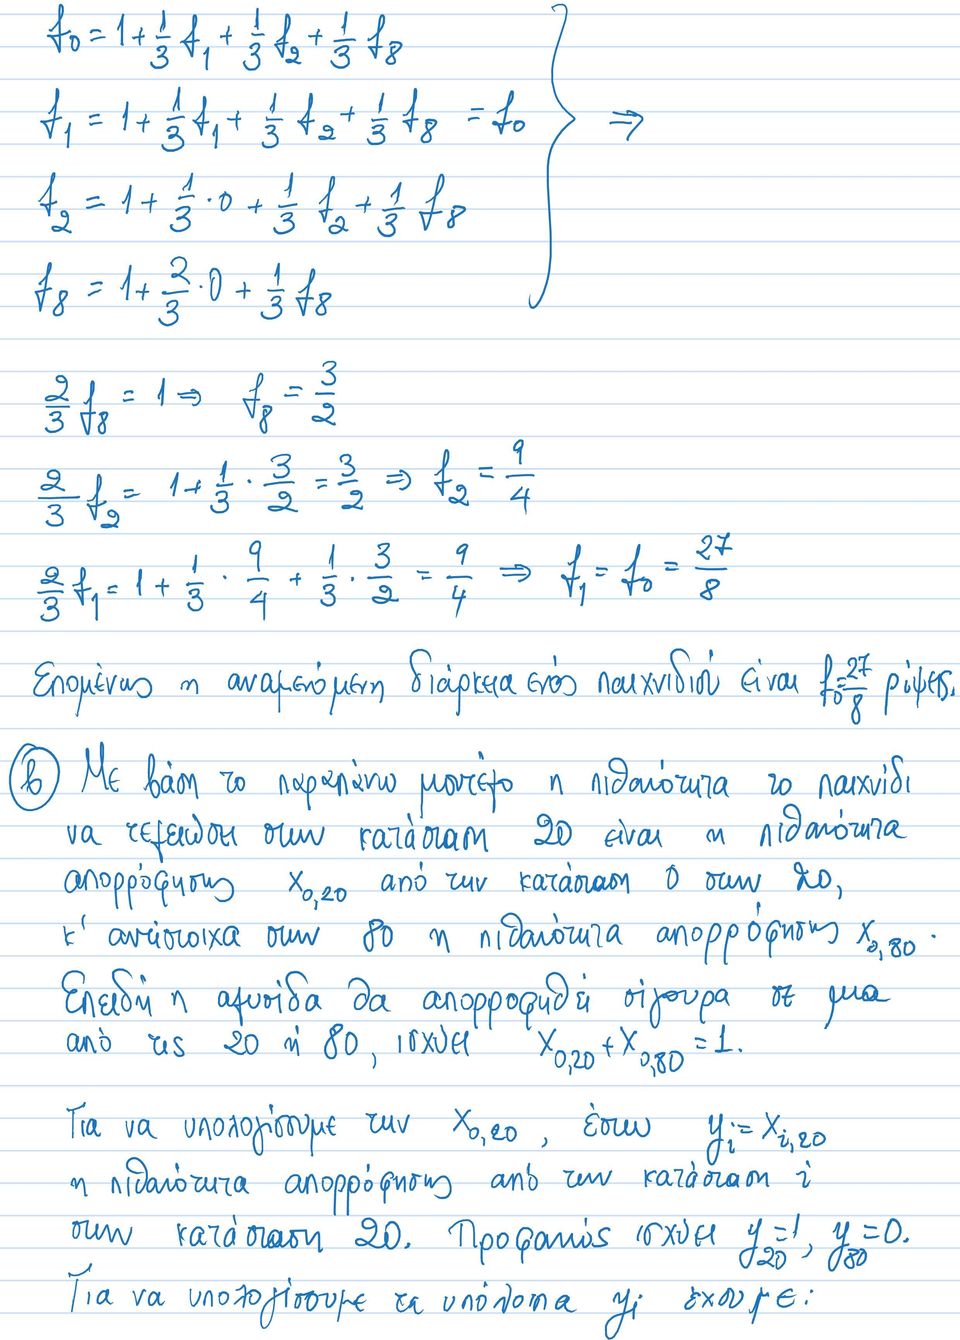 f₀ = 1 + 1/3 f₁ + 1/3 f₂ + 1/3 f₈
f₁ = 1 + 1/3 f₁ + 1/3 f₂ + 1/3 f₈ = f₀ } ⇒
f₂ = 1 + 1/3 · 0 + 1/3 f₂ + 1/3 f₈
f₈ = 1 + 2/3 · 0 + 1/3 f₈
2/3 f₈ = 1 ⇒ f₈ = 3/2
2/3 f₂ = 1 + 1/3 · 3/2 = 3/2 ⇒ f₂ = 9/4
2/3 f₁ = 1 + 1/3 · 9/4 + 1/3 · 3/2 = 9/4 ⇒ f₁ = f₀ = 27/8
Επομένως η αναμενόμενη διάρκεια ενός παιχνιδιού είναι f₀ = 27/8 ρίψεις.
(b) Με βάση το παραπάνω μοντέλο η πιθανότητα το παιχνίδι
να τελειώσει στην κατάσταση 20 είναι η πιθανότητα
απορρόφησης x₀,₂₀ από την κατάσταση 0 στην 20,
κ' αντίστοιχα στην 80 η πιθανότητα απορρόφησης x₀,₈₀.
Επειδή η αλυσίδα θα απορροφηθεί σίγουρα σε μια
από τις 20 ή 80, ισχύει x₀,₂₀ + x₀,₈₀ = 1.
Για να υπολογίσουμε την x₀,₂₀, έστω yᵢ = xᵢ,₂₀
η πιθανότητα απορρόφησης από την κατάσταση i
στην κατάσταση 20. Προφανώς ισχύει y₂₀ = 1, y₈₀ = 0.
Για να υπολογίσουμε τα υπόλοιπα yᵢ έχουμε: